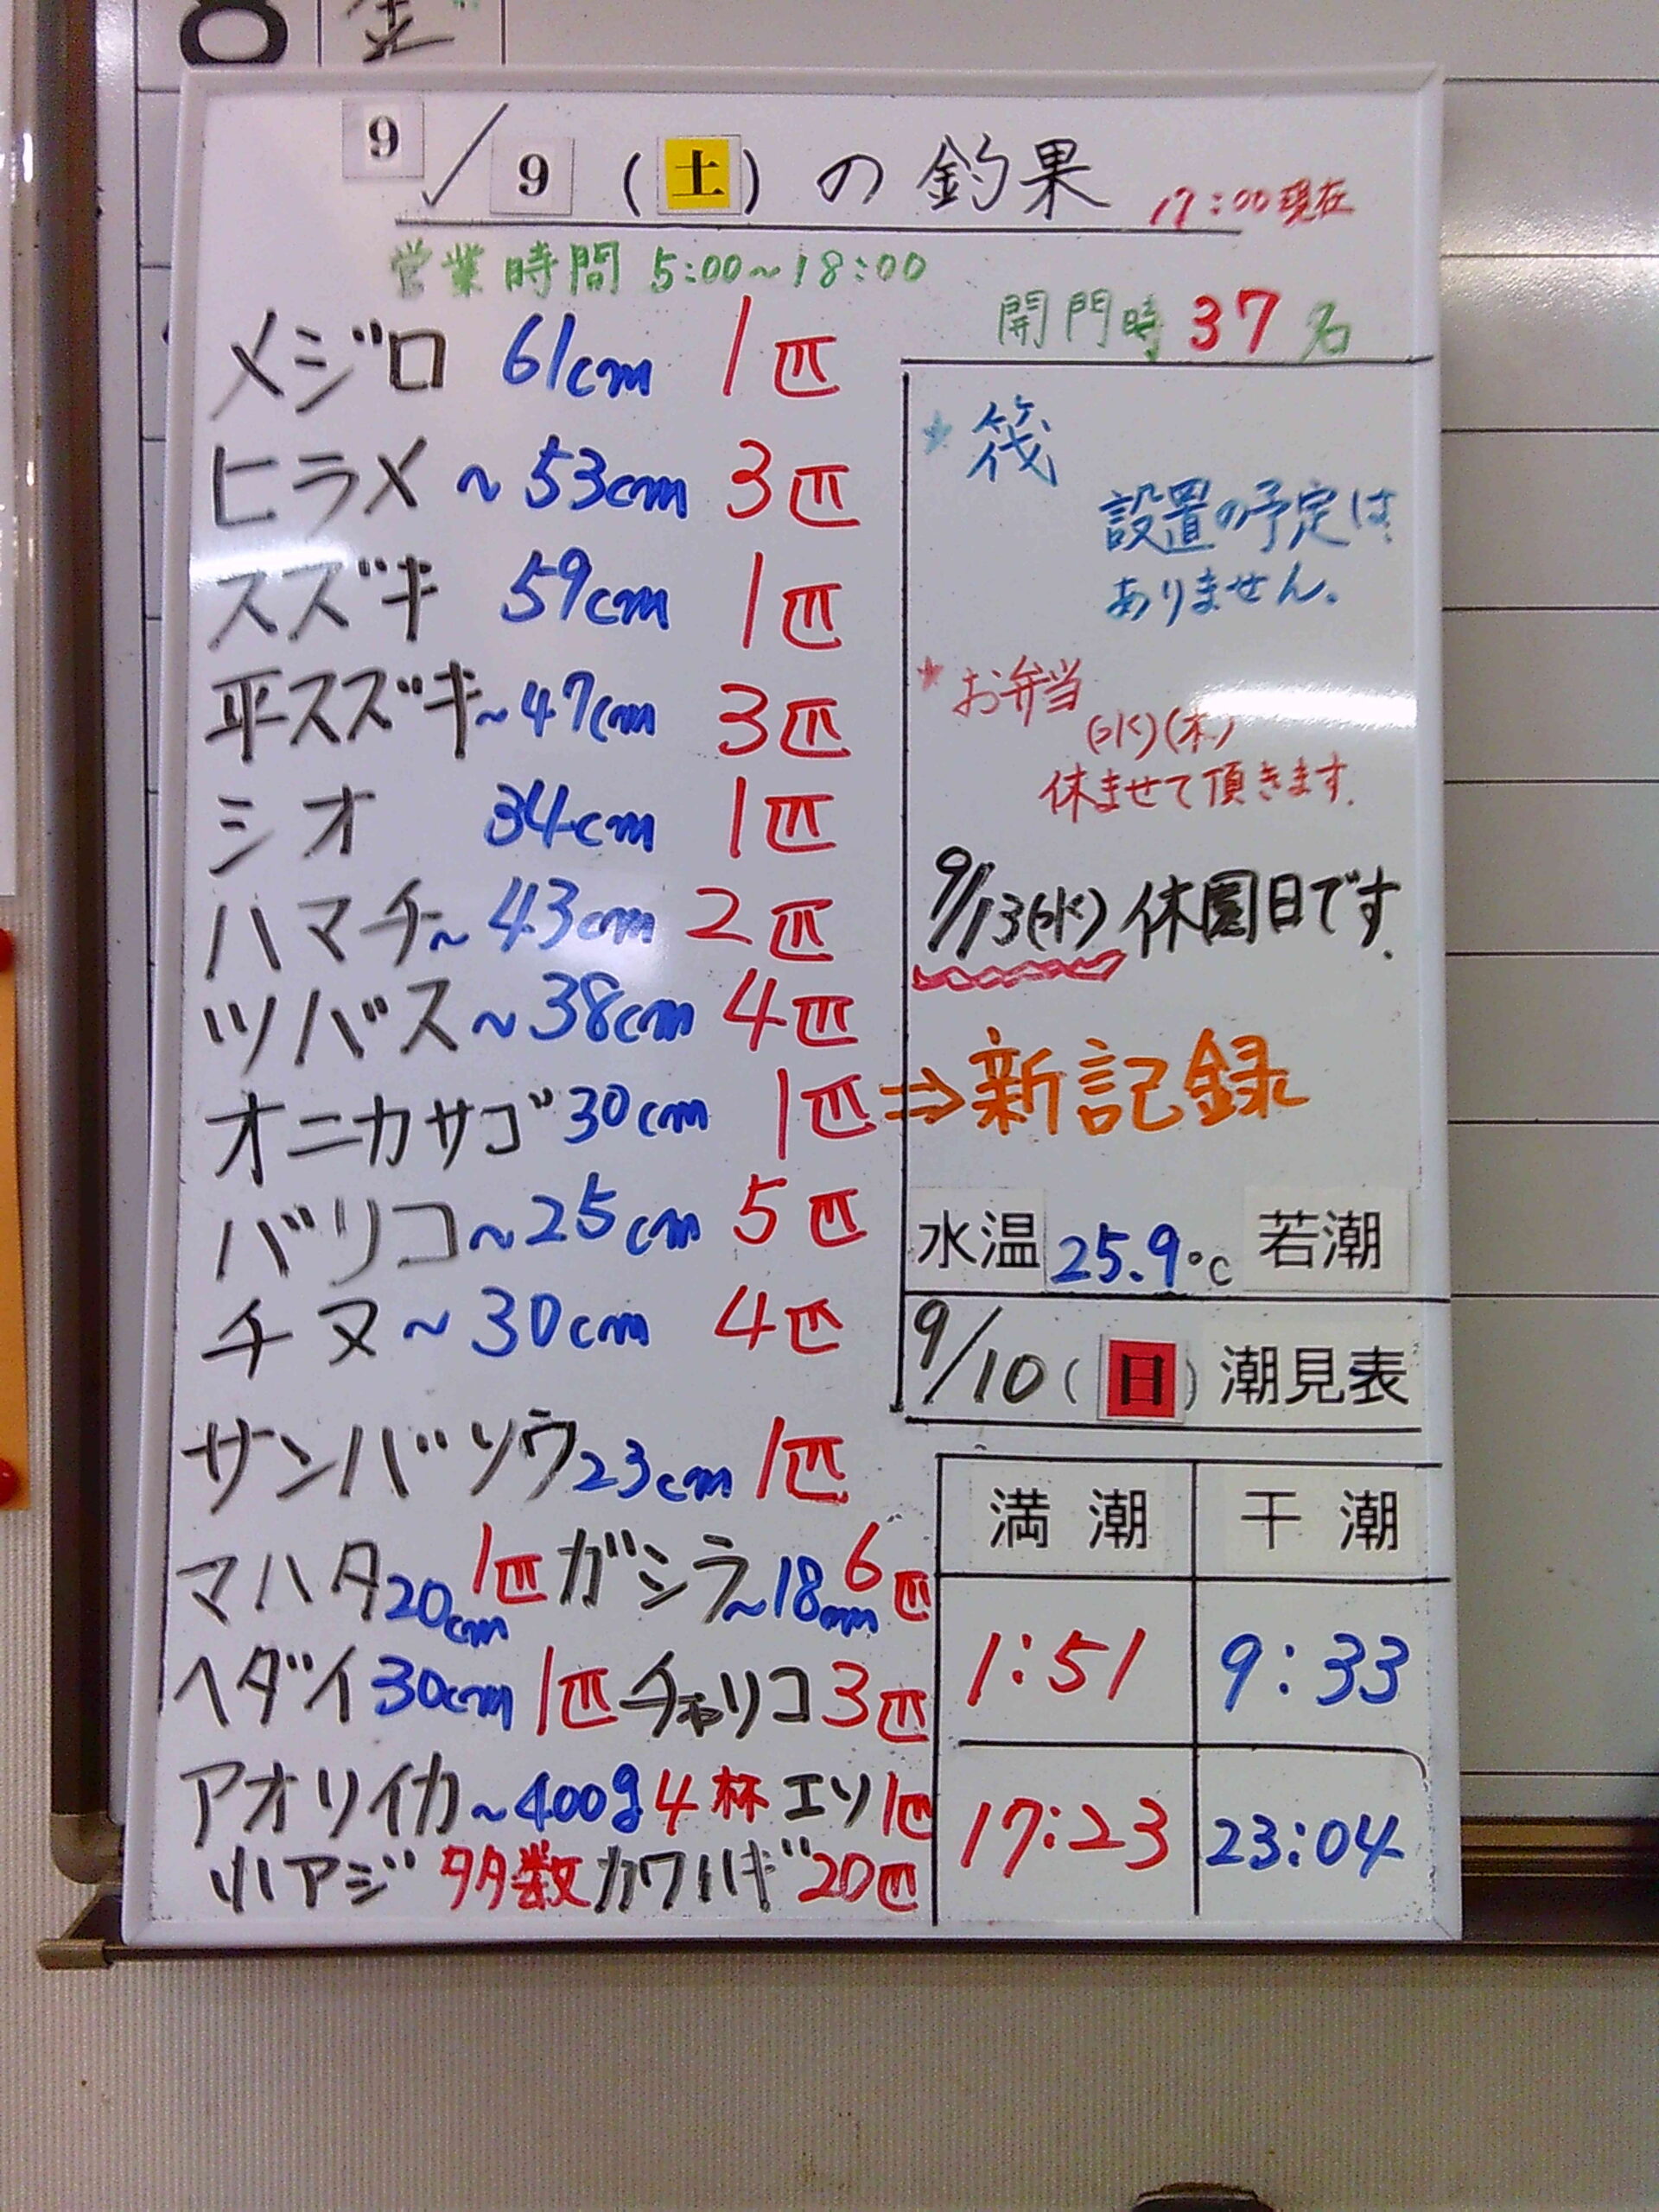 金
9/9(土)の釣果 17:00現在
営業時間 5:00~18:00
開門時 37名
メジロ 61cm 1匹
ヒラメ ~53cm 3匹
スズキ 59cm 1匹
平スズキ~47cm 3匹
シオ 34cm 1匹
ハマチ~43cm 2匹
ツバス~38cm 4匹
オニカサゴ30cm 1匹⇒新記録
バリコ~25cm 5匹
チヌ~30cm 4匹
サンバソウ23cm 1匹
マハタ20cm 1匹 ガシラ~18cm 6匹
ヘダイ30cm 1匹 チャリコ3匹
アオリイカ~400g 4杯 エソ1匹
小アジ 多数 カワハギ20匹
★筏
設置の予定は
ありません。
★お弁当
(水)(木)
休ませて頂きます.
9/13(水)休園日です.
水温 25.9℃ 若潮
9/10(日)潮見表
満潮 干潮
1:51 9:33
17:23 23:04